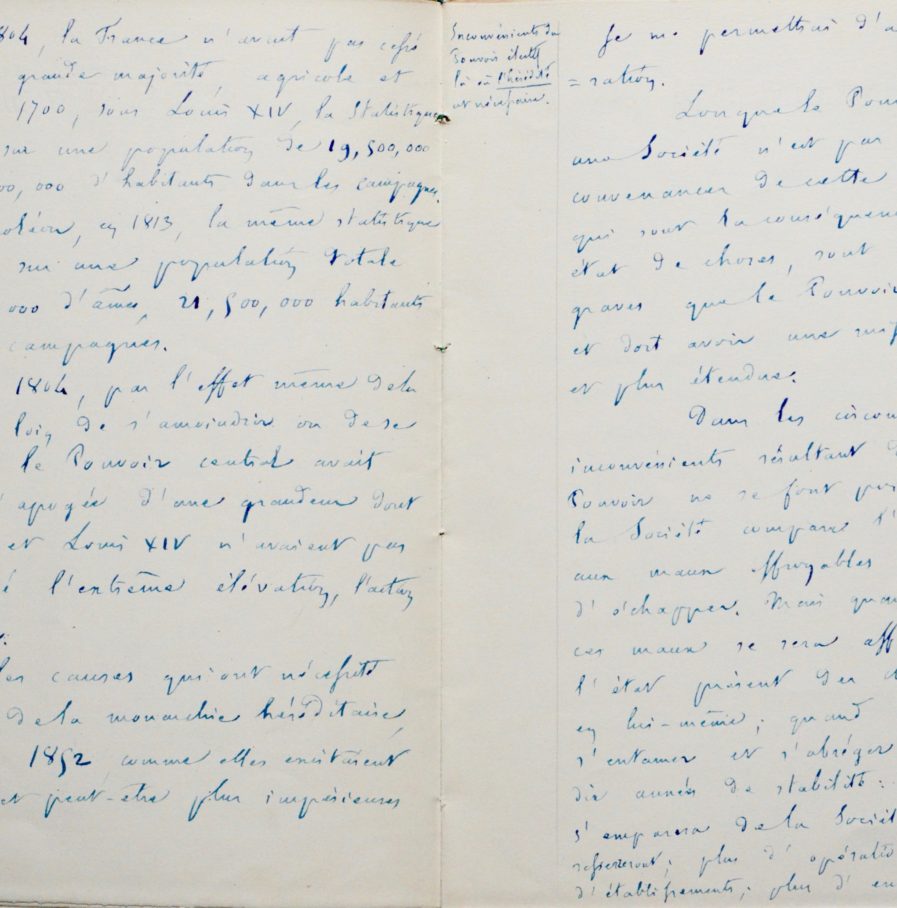 1804, la France n'avait pas cessé
grande majorité agricole et
1700, sous Louis XIV, la Statistique
sur une population de 19,500,000
00,000 d'habitants dans les campagnes.
oléon, en 1813, la même statistique
sur une population totale
000 d'âmes, 21,500,000 habitants
campagnes.
1804, par l'effet même de la
loin de s'amoindrir ou de se
le Pouvoir central avait
apogée d'une grandeur dont
et Louis XIV n'avaient pas
é l'extrême élévation, l'action
les causes qui ont nécessité
de la monarchie héréditaire,
1852, comme elles existaient
et peut-être plus impérieuses
Inconvénients du
Pouvoir électif
là où l'hérédité
est nécessaire.
Je me permettrai d'a
=ration.
Lorsque le Pouv
une Société n'est pas
convenances de cette
qui sont la conséquen
état de choses, sont
graves que le Pouvoir
et doit avoir une
et plus étendue.
Dans les circon
inconvénients résultant d
Pouvoir ne se font pas
la Société compare l'
aux maux effroyables
d'échapper. Mais quan
ces maux se sera aff
l'état présent des
en lui-même; quand
s'entamer et s'abréger
dix années de stabilité:
s'emparera de la Sociét
resserreront; plus d'opératio
d'établissements; plus d'en